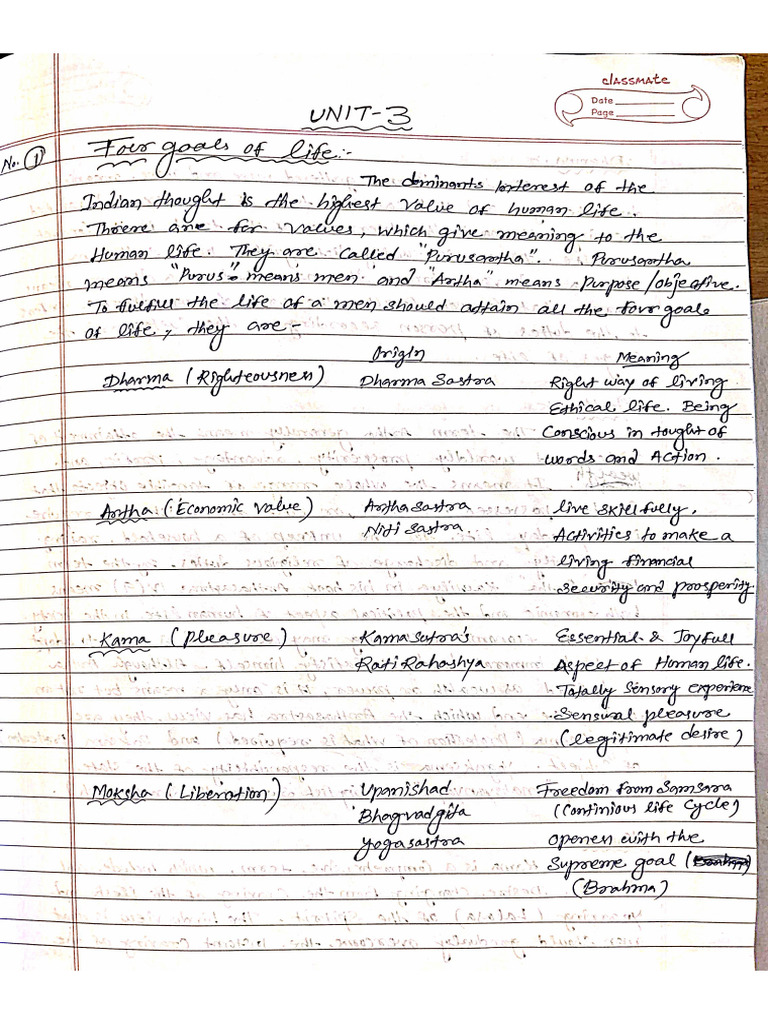 classmate
Date
Page
UNIT-3
No. 1
Four goals of life:-
The dominants interest of the
Indian thought is the highest value of human life.
There are for values, which give meaning to the
Human life. They are called "Purusartha". Purusartha
means "Purus" means men and "Artha" means Purpose/objective.
To fulfull the life of a men should attain all the four goals
of life, they are -
Origin Meaning
Dharma (Righteousness) Dharma Sastra Right way of living
Ethical life. Being
Conscious in tought of
words and Action.
Artha (Economic value) Artha sastra live skillfully,
Niti Sastra Activities to make a
living financial
security and prosperity
Kama (Pleasure) Kama sutra's Essential & Joyfull
Rati Rahashya Aspect of Human life.
Totally Sensory experience
Sensural pleasure
(legitimate desire)
Moksha (Liberation) Upanishad Freedom from Samsara
Bhagvadgita (Continious life Cycle)
Yogasastra openen with the
Supreme goal (
(Brahma)